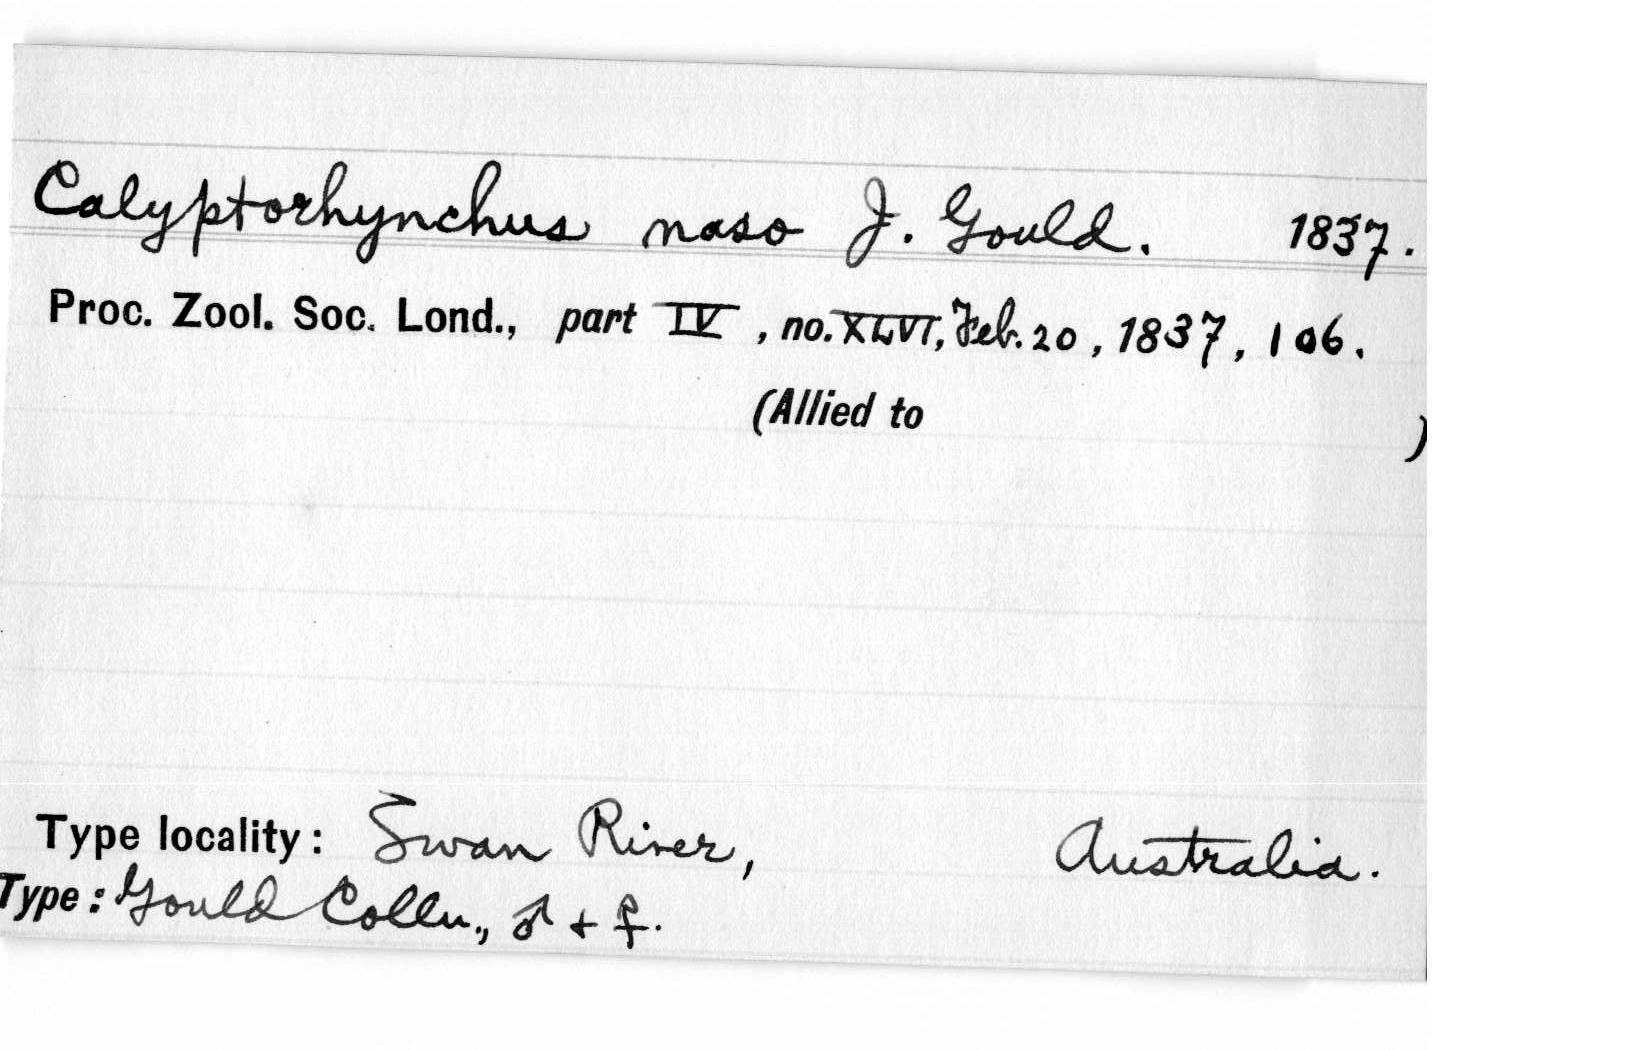 Calyptorhynchus naso J. Gould. 1837.
Proc. Zool. Soc. Lond., part IV, no. XLVI, Feb. 20, 1837, 106.
(Allied to )
Type locality: Swan River, Australia.
Type: Gould Colln., ♂ + ♀.